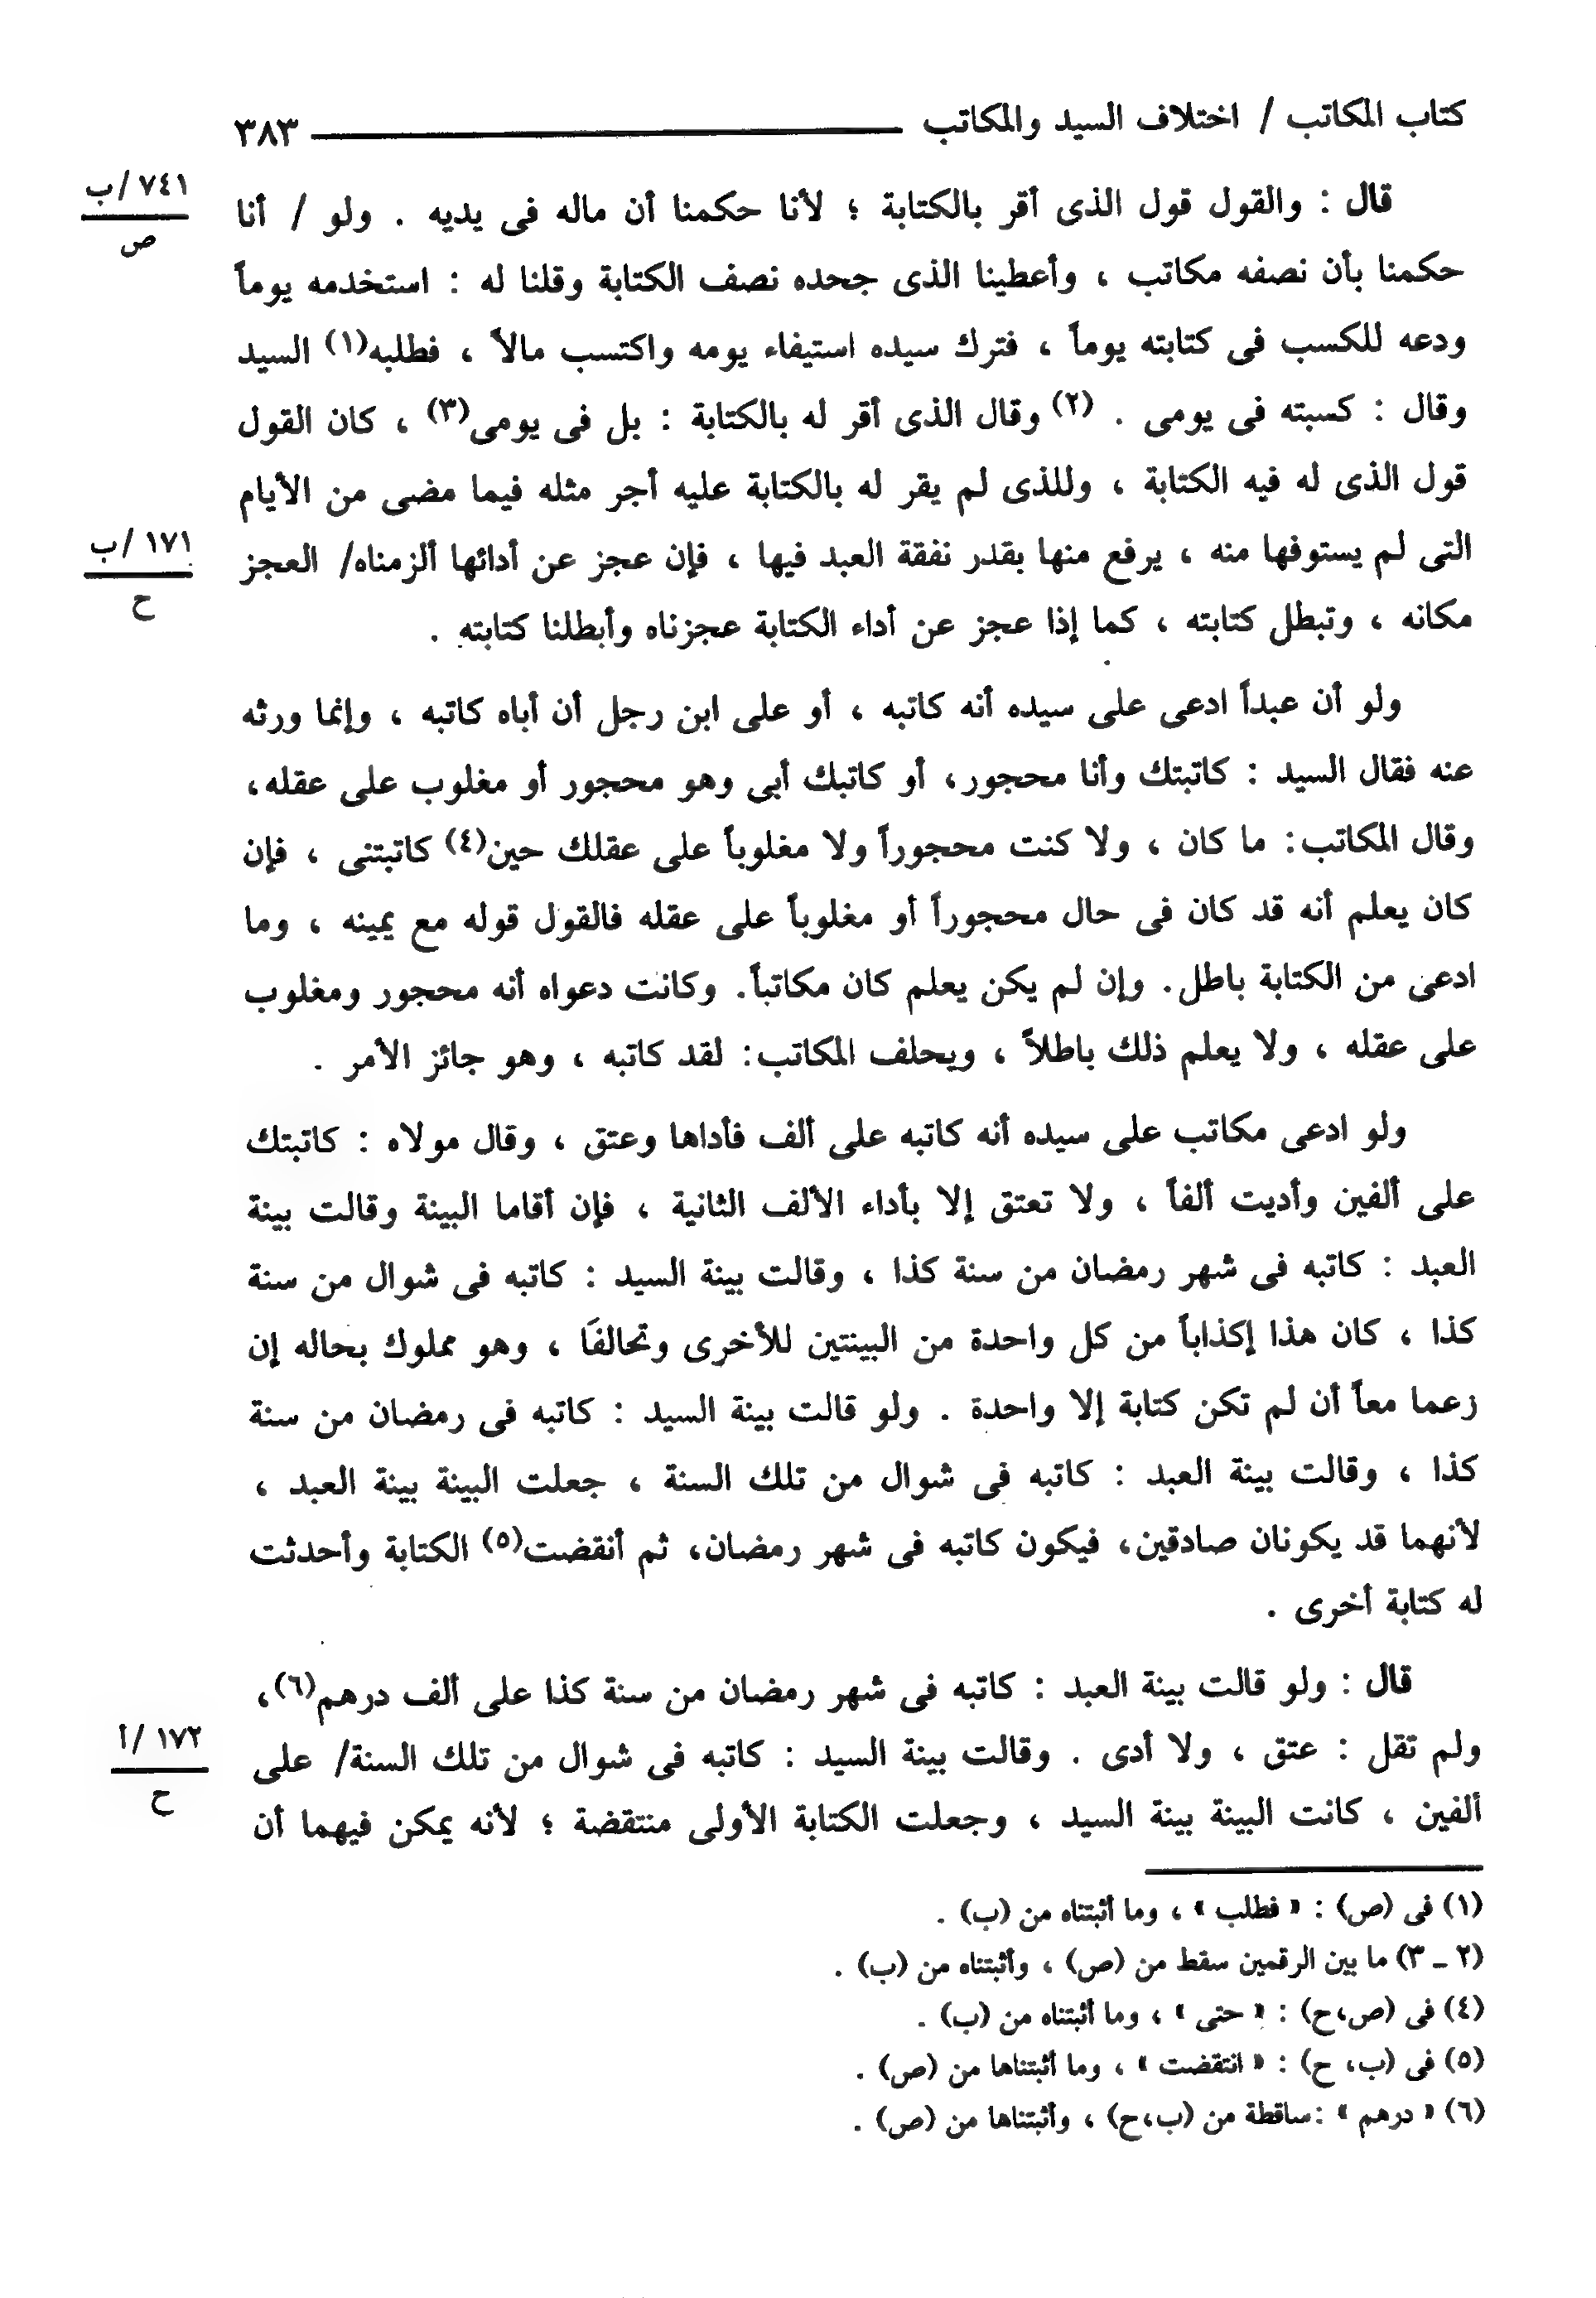 كتاب المكاتب / اختلاف السيد والمكاتب ٣٨٣
قال : والقول قول الذى أقر بالكتابة ؛ لأنا حكمنا أن ماله فى يديه . ولو / أنا
٧٤١ /ب
ص
حكمنا بأن نصفه مكاتب ، وأعطينا الذى جحده نصف الكتابة وقلنا له : استخدمه يوماً
ودعه للكسب فى كتابته يوماً ، فترك سيده استيفاء يومه واكتسب مالاً ، فطلبه(١) السيد
وقال : كسبته فى يومى . (٢) وقال الذى أقر له بالكتابة : بل فى يومى(٣) ، كان القول
قول الذى له فيه الكتابة ، وللذى لم يقر له بالكتابة عليه أجر مثله فيما مضى من الأيام
التى لم يستوفها منه ، يرفع منها بقدر نفقة العبد فيها ، فإن عجز عن أدائها ألزمناه/ العجز
١٧١ /ب
ح
مكانه ، وتبطل كتابته ، كما إذا عجز عن أداء الكتابة عجزناه وأبطلنا كتابته .
ولو أن عبداً ادعى على سيده أنه كاتبه ، أو على ابن رجل أن أباه كاتبه ، وإنما ورثه
عنه فقال السيد : كاتبتك وأنا محجور، أو كاتبك أبى وهو محجور أو مغلوب على عقله،
وقال المكاتب: ما كان ، ولا كنت محجوراً ولا مغلوباً على عقلك حين(٤) كاتبتنى ، فإن
كان يعلم أنه قد كان فى حال محجوراً أو مغلوباً على عقله فالقول قوله مع يمينه ، وما
ادعى من الكتابة باطل. وإن لم يكن يعلم كان مكاتباً. وكانت دعواه أنه محجور ومغلوب
على عقله ، ولا يعلم ذلك باطلاً ، ويحلف المكاتب: لقد كاتبه ، وهو جائز الأمر .
ولو ادعى مكاتب على سيده أنه كاتبه على ألف فأداها وعتق ، وقال مولاه : كاتبتك
على ألفين وأديت ألفاً ، ولا تعتق إلا بأداء الألف الثانية ، فإن أقاما البينة وقالت بينة
العبد : كاتبه فى شهر رمضان من سنة كذا ، وقالت بينة السيد : كاتبه فى شوال من سنة
كذا ، كان هذا إكذاباً من كل واحدة من البينتين للأخرى وتحالفَا ، وهو مملوك بحاله إن
زعما معاً أن لم تكن كتابة إلا واحدة . ولو قالت بينة السيد : كاتبه فى رمضان من سنة
كذا ، وقالت بينة العبد : كاتبه فى شوال من تلك السنة ، جعلت البينة بينة العبد ،
لأنهما قد يكونان صادقين، فيكون كاتبه فى شهر رمضان، ثم أنقضت(٥) الكتابة وأحدثت
له كتابة أخرى .
قال : ولو قالت بينة العبد : كاتبه فى شهر رمضان من سنة كذا على ألف درهم(٦)،
ولم تقل : عتق ، ولا أدى . وقالت بينة السيد : كاتبه فى شوال من تلك السنة/ على
١٧٢ /أ
ح
ألفين ، كانت البينة بينة السيد ، وجعلت الكتابة الأولى منتقضة ؛ لأنه يمكن فيهما أن
(١) فى (ص) : « فطلب » ، وما أثبتناه من (ب) .
(٢ ــ ٣) ما بين الرقمين سقط من (ص) ، وأثبتناه من (ب) .
(٤) فى (ص،ح) : « حتى » ، وما أثبتناه من (ب) .
(٥) فى (ب، ح) : « انتقضت » ، وما أثبتناها من (ص) .
(٦) « درهم » :ساقطة من (ب،ح) ، وأثبتناها من (ص) .